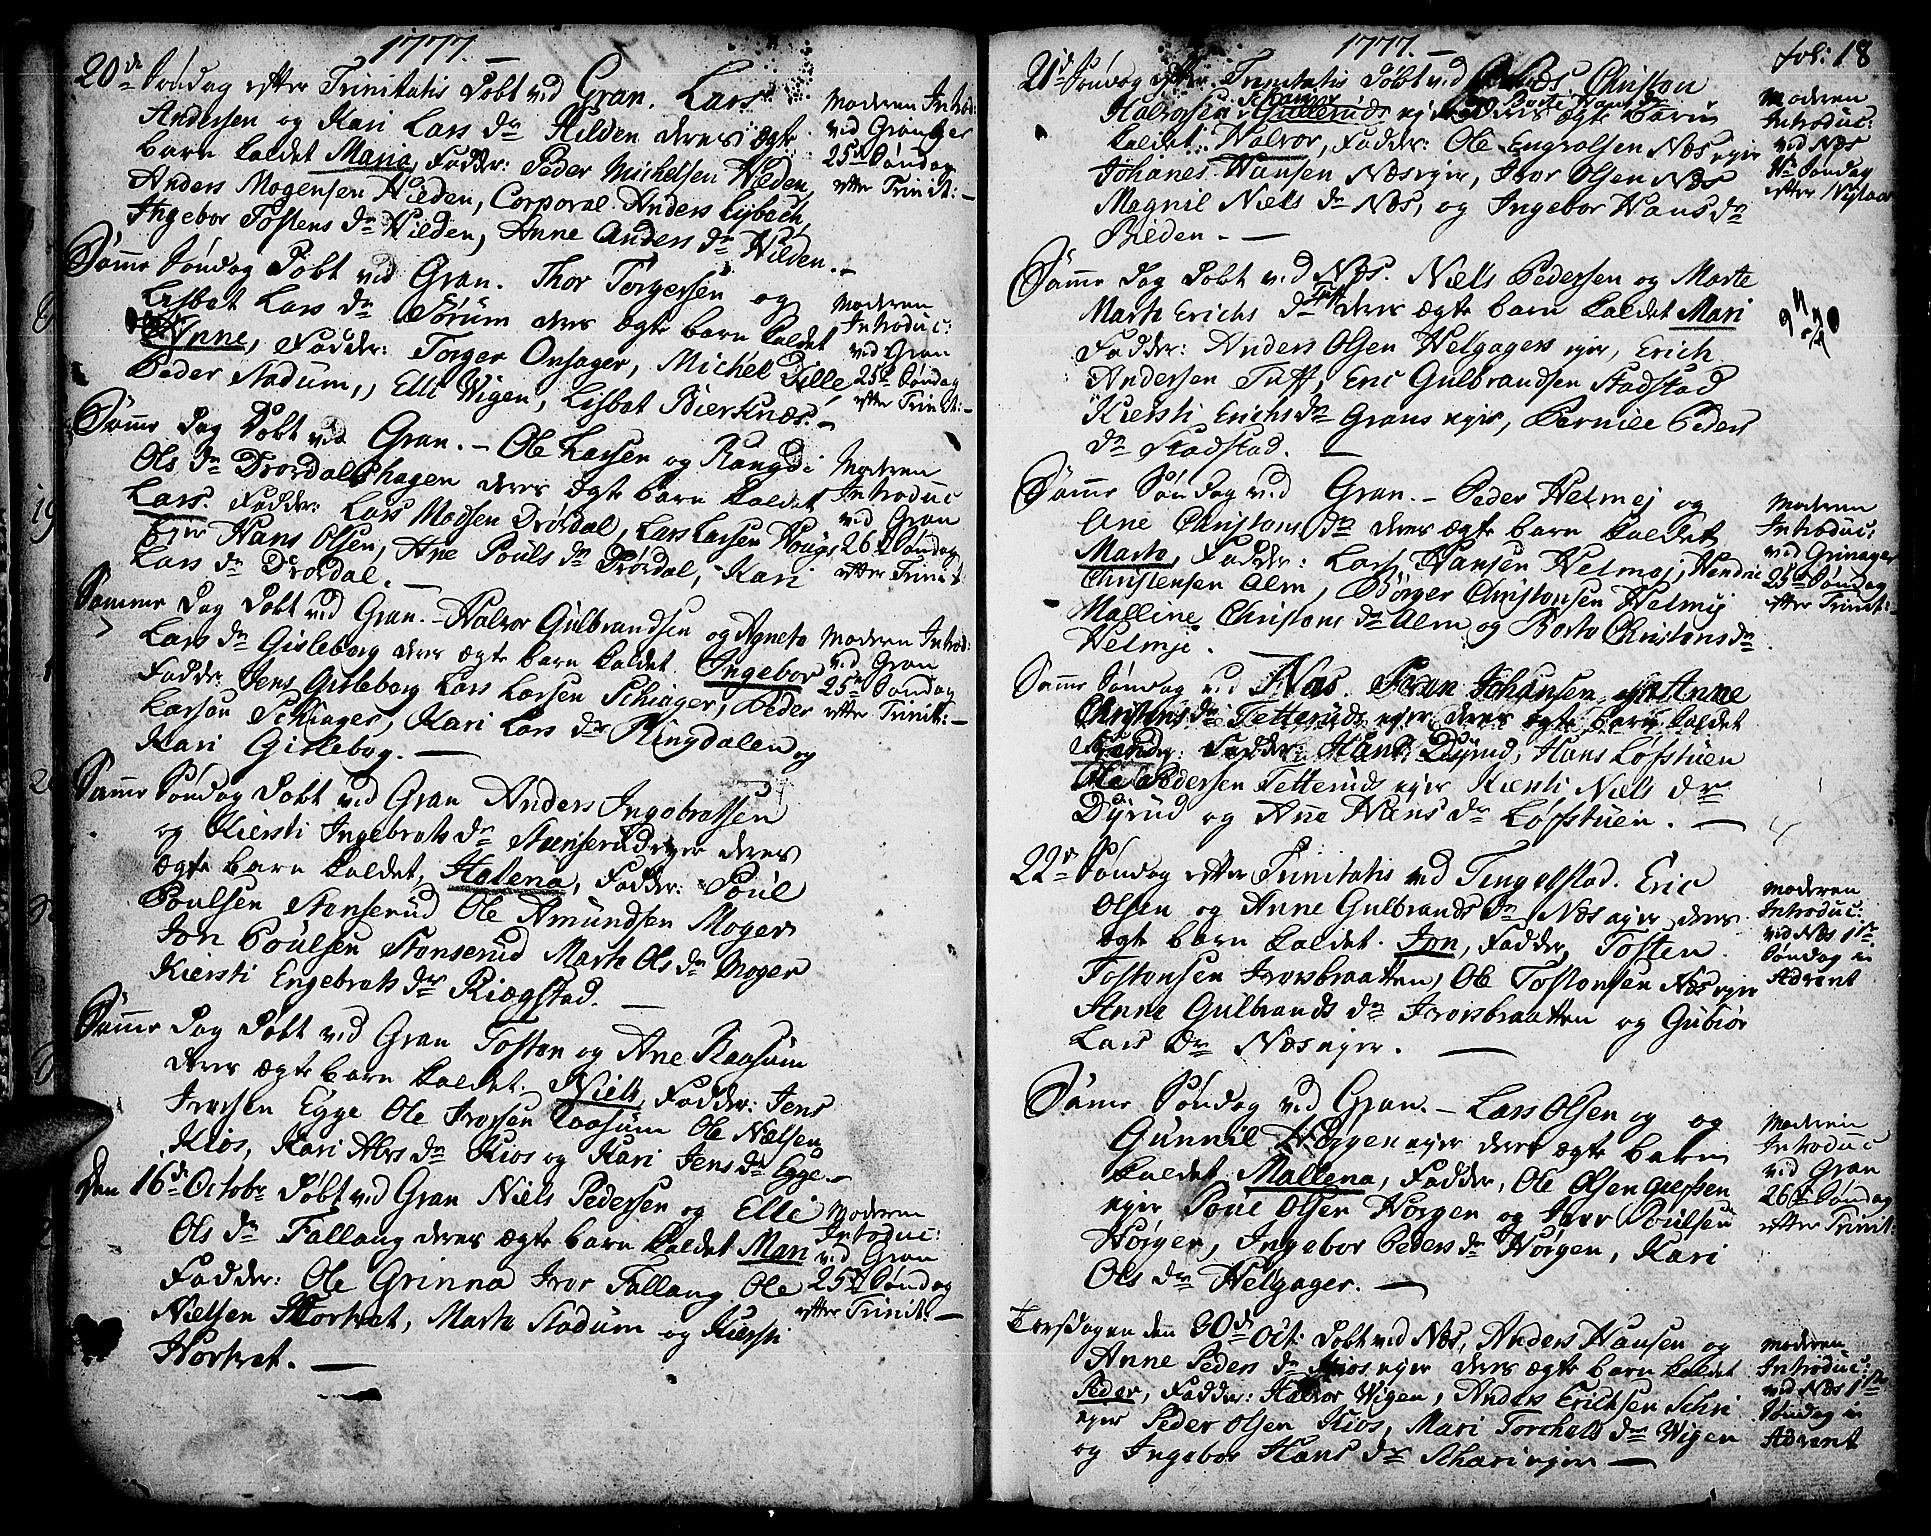 1777. –
20de Søndag efter Trinitatis Døbt ved Gran. Lars
Andersen og Kari Lars dr Hilden deres ægte
barn kaldet Maria, Fadder: Peder Michelsen Hilden,
Anders Mogensen Hilden, Corporal Anders Lybach,
Ingebor Tostens dr Hilden, Anne Anders dr Hilden. –
Moderen Introd:
ved Granager
25de Søndag
efter Trinit: –
Samme Søndag Døbt ved Gran. Thor Torgersen og
Lisbet Lars dr Sørum deres ægte barn kaldet
Anne, Fadder: Torger Onsager, Michel Dille,
Peder Stadum, Elli Wigen, Lisbet Bierknæs. –
Moderen
Introduc:
ved Gran
25de Søndag
efter Trinit: –
Samme Dag Døbt ved Gran. – Ole Larsen og Rangdi
Ols dr Drørdalshagen deres ægte barn kaldet
Lars. Fadder: Lars Madsen Drørdal, Lars Larsen Houg
ejer Hans Olsen, Ane Pouls dr Drørdal, Kari
Lars dr Drørdal. –
Moderen
Introduc
ved Gran
26de Søndag
efter Trinit
Samme Dag Døbt ved Gran. – Halvor Gulbrandsen og Agneta
Lars dr Gisleborg deres ægte barn kaldet Ingebor
Fadder Jens Gisleborg Lars Larsen Schiager, Peder
Larsøn Schiager, Kari Lars dr Ringdalen og
Kari Gislebog. –
Moderen Introd:
ved Gran
25de Søndag
efter Trinit: –
Samme Søndag Døbt ved Gran Anders Ingebretsen
og Kiersti Ingebrets dr Stenserud ejer deres
ægte barn kaldet, Halena, Fadder: Poul
Poulsen Stenserud Ole Amundsen Moger
Jon Poulsen Stenserud Marte Ols dr Moger
Kiersti Engebrets dr Riøgstad. –
Samme Dag Døbt ved Gran Tosten og Ane Raasum
deres ægte barn kaldet. Niels, Fadder: Jens
Iversen Egge Ole Iversen Raasum Ole Nielsen
Kios, Kari Alvs dr Kios og Kari Jens dr Egge. –
Den 16de Octobr Døbt ved Gran Niels Pedersen og Elli
Ols dr Fallang deres ægte barn kaldet Mari
Fadder: Ole Grinna Iver Fallang Ole
Nielsen Hortvet, Marte Stadum og Kiersti
Hortvet. –
Moderen
Introduc:
ved Gran
25de Søndag
efter Trinit: –
1777. – fol: 18
21de Søndag efter Trinitatis Døbt ved Næs Christen
Halvorsen Gullerud ejer deres ægte barn
kaldet: Halvor, Fadder: Ole Engvolsen Næs ejer
Johanes Hansen Næs ejer, Iver Olsen Næs
Magnil Niels dr Næs, og Ingebor Hans dr
Bilden. –
Moderen
Introduc:
ved Næs
Søndag
efter Nytaar
Samme Dag Døbt ved Næs. Niels Pedersen og Marte
Marte Erichs dr Tuff deres ægte barn kaldet Mari
Fadder: Anders Olsen Helgagers ejer, Erich
Andersen Tuff, Eric Gulbrandsen Stadstad
Kiersti Erichs dr Grans ejer, Pernile Peders
dr Stadstad. –
Samme Søndag ved Gran. – Peder Helmej og
Ane Christens dr deres ægte barn kaldet
Marte, Fadder: Lars Hansen Helmej, Hendric
Christensen Alm, Børger Christensen Helmej
Malline Christens dr Alm og Berte Christens dr
Helmje.
Moderen
Introduc:
ved Grinager
25de Søndag
efter Trinit: –
Samme Søndag ved Næs. Iver Johansen og Anne
Christens dr Tetteruds ejer deres ægte barn kaldet
Fadder: Hans Dyrud, Hans Løfstuen
Ole Pedersen Tetterud ejer Kiersti Niels dr
Dyrud og Ane Hans dr Løfstuen. –
22de Søndag efter Trinitatis ved Tengelstad. Eric
Olsen og Anne Gulbrands dr Næs ejer deres
ægte barn kaldet. Jon, Fadder, Tosten
Tostensen Iversbraatten, Ole Tostensen Næs ejer
Anne Gulbrands dr Iversbraatten og Gubiør
Lars dr Næs ejer. –
Moderen
Introduc:
ved Næs 1ste
Søndag in
Advent
Samme Søndag ved Gran. – Lars Olsen og og
Gunnil Horgen ejer deres ægte barn
kaldet Mallena, Fadder, Ole Olsen
ejer Poul Olsen Horgen og Iver Poulsen
Hørgen, Ingebor Peders dr Hørgen, Kari
Ols dr Helgager. –
Moderen
Introduc
ved Gran
26de Søndag
efter Trinit:
Torsdagen den 30de Oct: Døbt ved Næs, Anders Hansen og
Anne Peders dr Kios ejer deres ægte barn kaldet
Peder, Fadder: Halvor Wigen, Anders Erichsen Schri
ejer Peder Olsen Kios, Mari Torchels dr Wigen
og Ingebor Hans dr Schari ejer –
Moderen
Introduc:
ved Næs 1ste
Søndag in
Advent